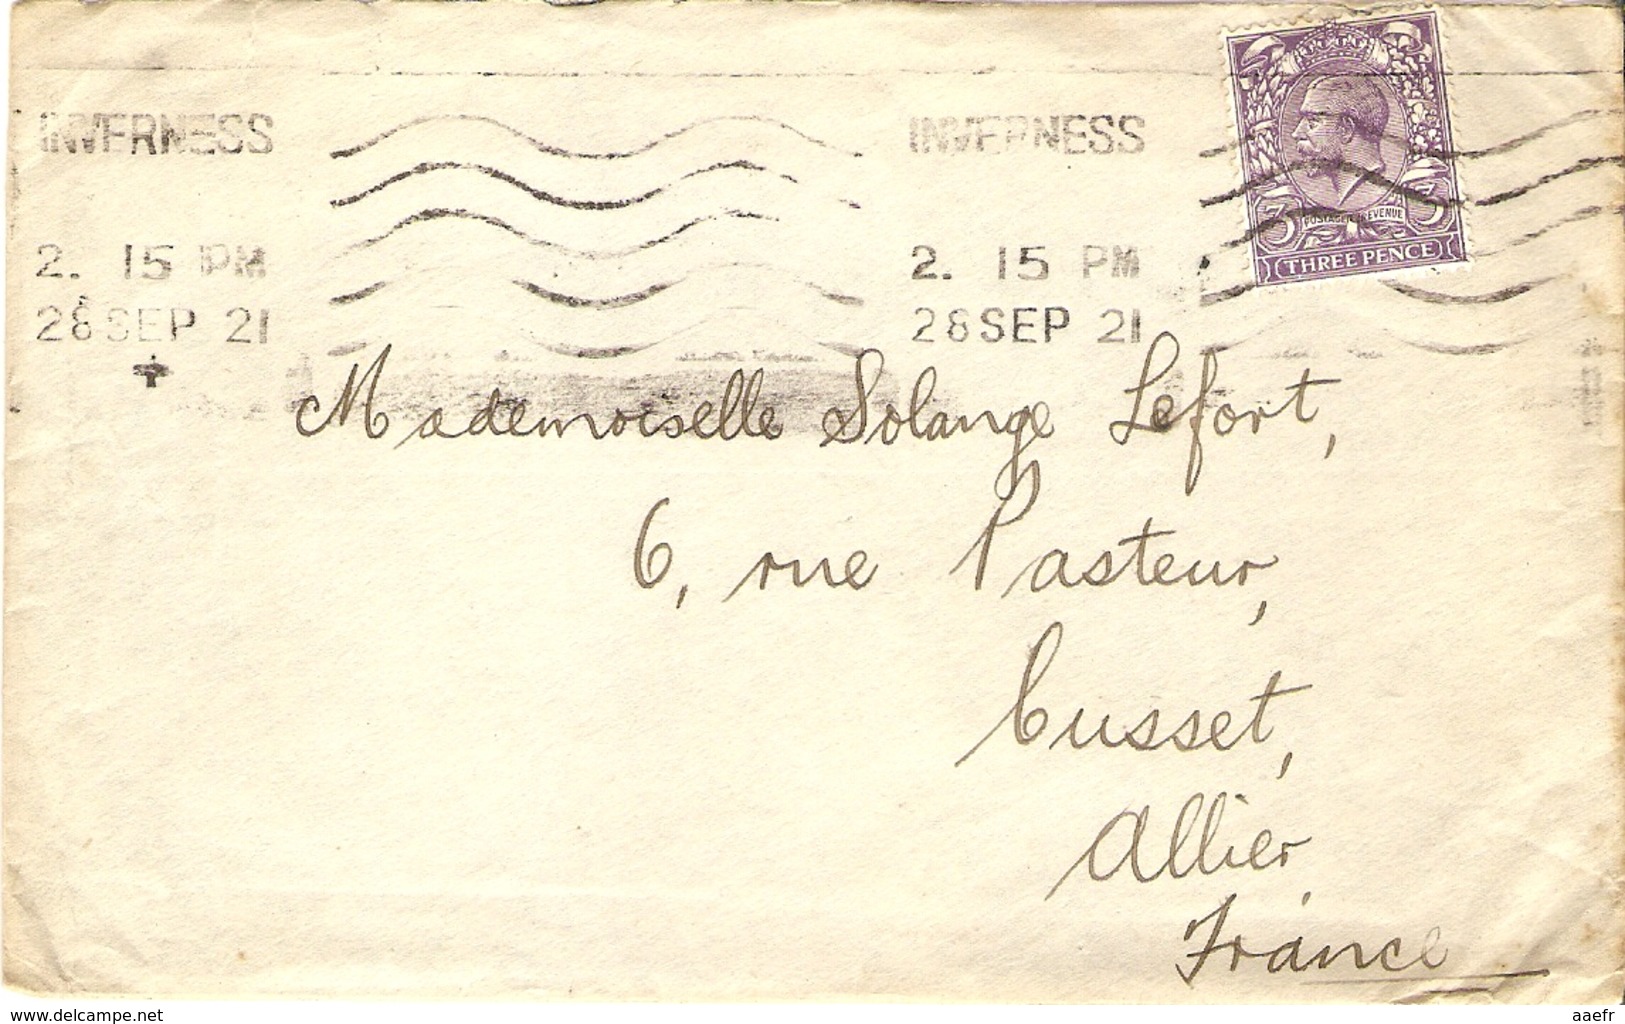 INVERNESS INVERNESS
2. 15 PM 2. 15 PM
28 SEP 21 28 SEP 21
3 POSTAGE REVENUE 3
THREE PENCE
Mademoiselle Solange Lefort,
6, rue Pasteur,
Cusset,
Allier,
France
www.delcampe.net
aaefr